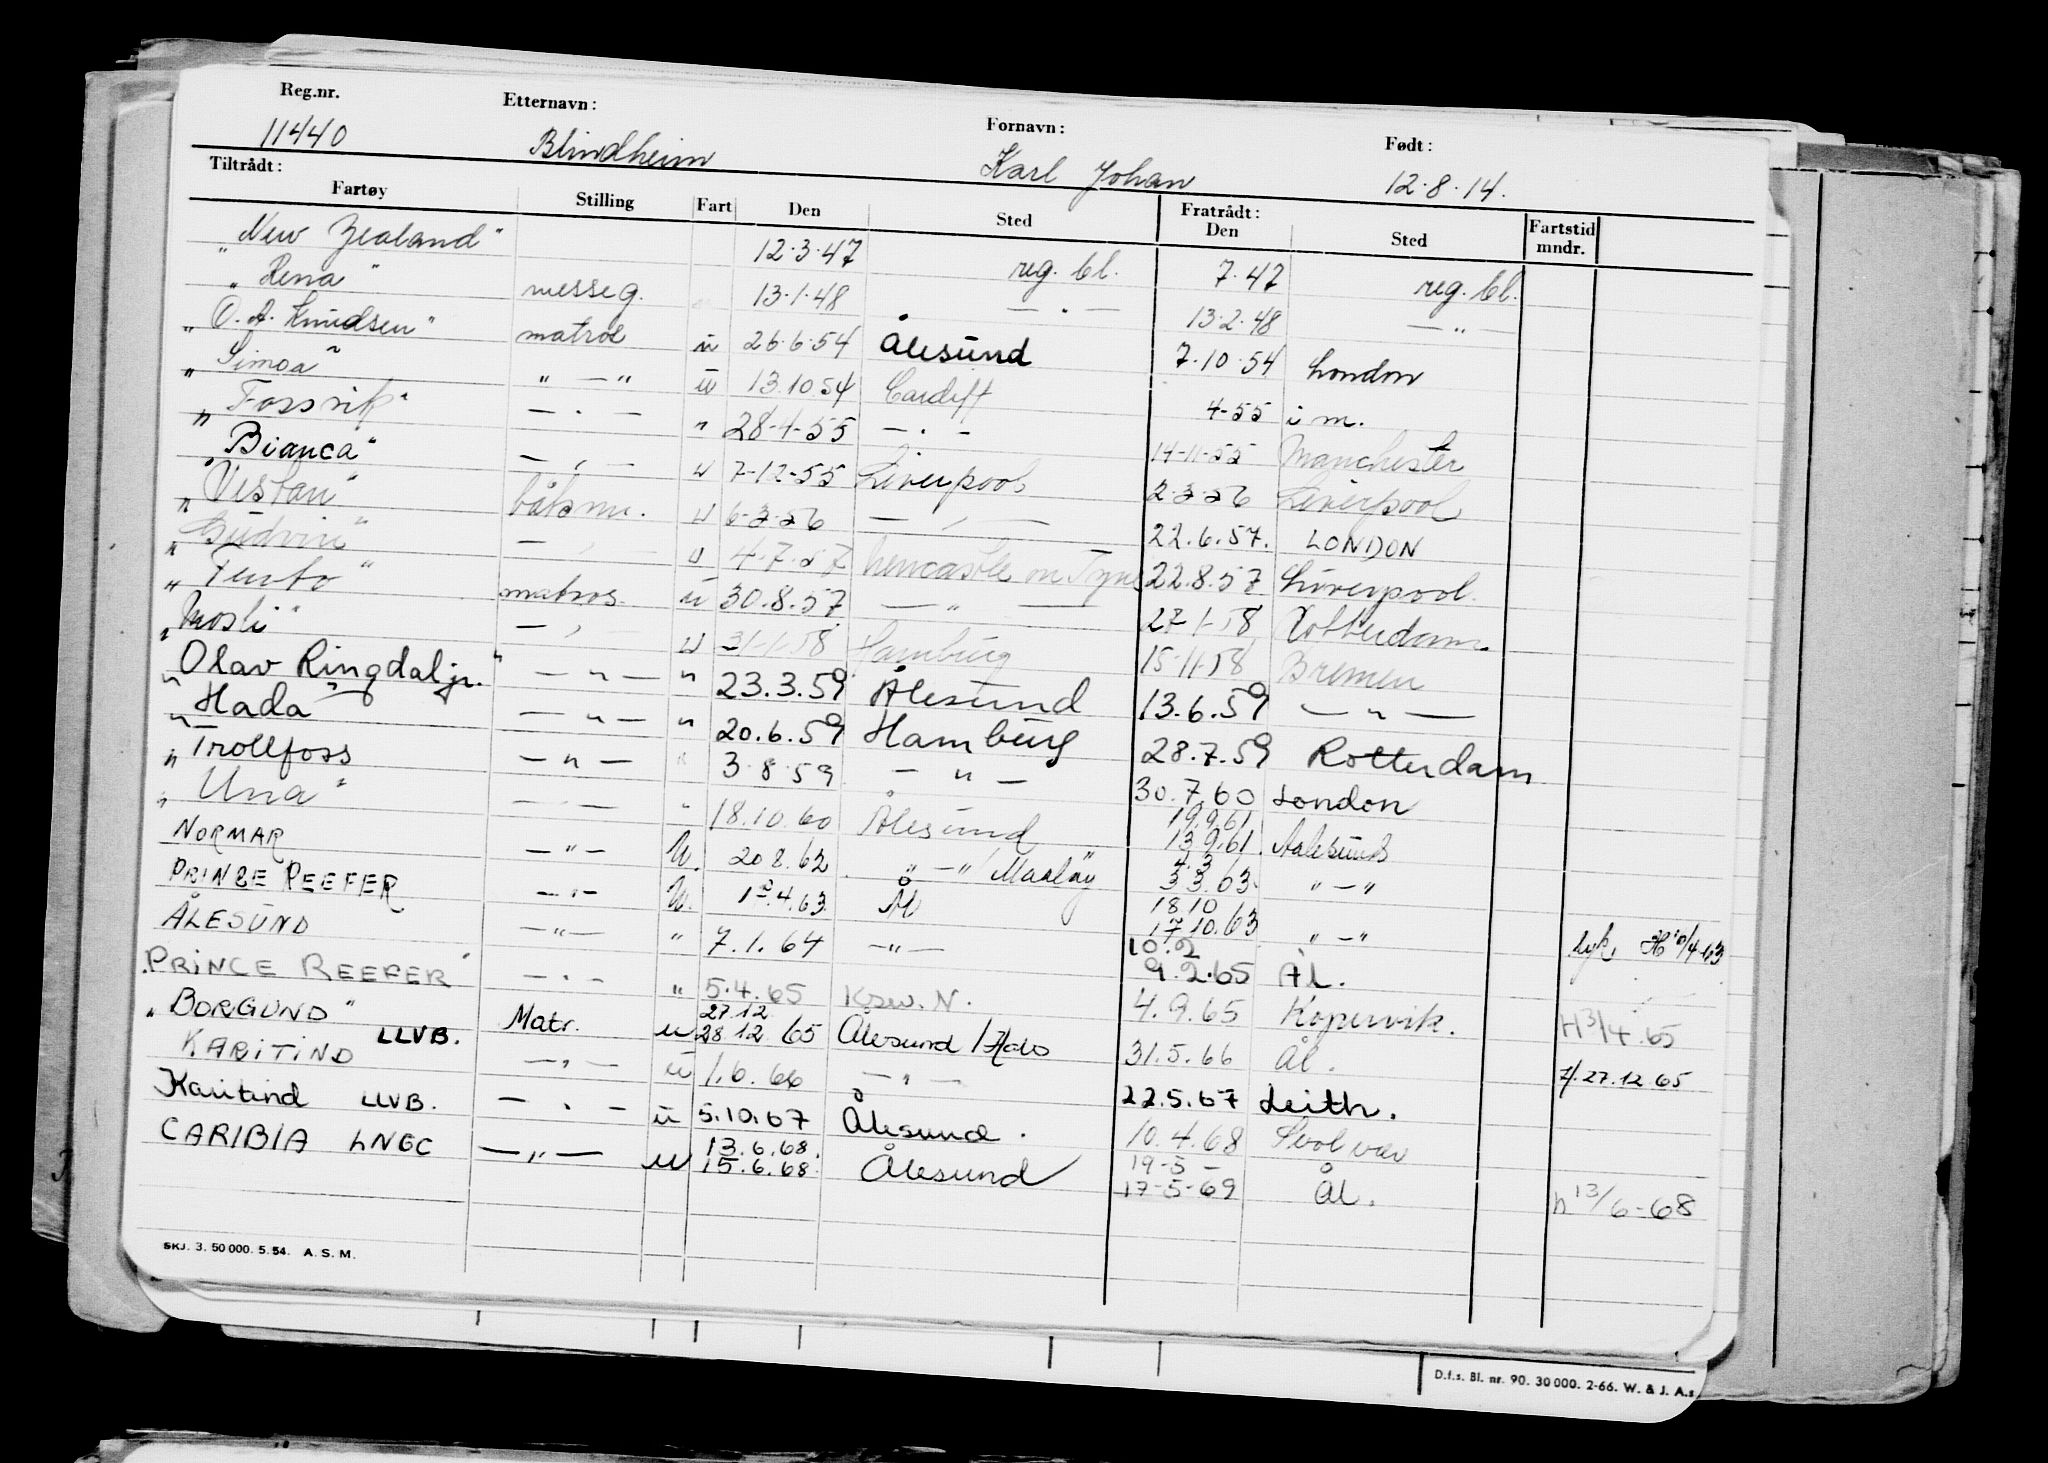 Reg.nr. Etternavn: Fornavn: Født:
11440 Blindheim Karl Johan 12.8.14.
Tiltrådt: Fratrådt:
Fartøy Stilling Fart Den Sted Den Sted Fartstid mndr.
"New Zealand" 12.3.47 reg. bl. 7.47 reg. bl.
"Rena" messeg. 13.1.48 — " — 13.2.48 — " —
"O. A. Knudsen" matros u 26.6.54 Ålesund 7.10.54 London
"Simoa" " — " u 13.10.54 Cardiff 4-55 i m.
"Fossvik" — " — " 28-4-55 — " — 14-11-55 Manchester
"Bianca" — " — u 7-12-55 Liverpool 2-3-56 Liverpool
"Vestan" båtsm. u 6-3-56 — " — 22.6.57. LONDON
"Gudvin" — " — u 4-7-57 Newcastle on Tyne 22.8.57 Liverpool.
matros u 30.8.57 — " — 27-1-58 Rotterdam
"Mosli" — " — u 31-1-58 Hamburg 15-11-58 Bremen
"Olav Ringdal jr." — " — " 23.3.59 Ålesund 13.6.59 — " —
"Hada" — " — " 20.6.59 Hamburg 28.7.59 Rotterdam
"Trollfoss — " — " 3.8.59 — " — 30.7.60 London
"Una" — " — " 18.10.60 Ålesund 19.9.61 13.9.61. Aalesund
NORMAR — " — U. 20 8.62 " — " / Maaløy 4.3 3 3.63. " — "
PRINSE REEFER — " — U. 1.4.63 Å 18 10 17 10.63 " — "
ÅLESUND — " — " 7.1.64 — " — 10.2 9.2.65 Ål. H 10/4-63
"PRINCE REEFER" — " — " 5.4.65 N. 4.9.65 Kopervik. H 3/4.65
"BORGUND" LLVB. Matr. u 27.12 28 12 65 Ålesund 31.5.66 Ål. 27.12 65
KARITIND — " — u 1.6.66 — " — 22.5.67 Leith.
Karitind LLVB. — " — u 5.10.67 Ålesund. 10.4.68 Svolvær
CARIBIA LNGC — " — u 13.6.68. 15.6.68. Ålesund 19-5 – 17-5-69 Ål. h 13/6-68
SKJ. 3. 50 000. 5.54. A. S. M.
D.f.s. Bl. nr. 90. 30 000. 2-66. W. & J. A.s